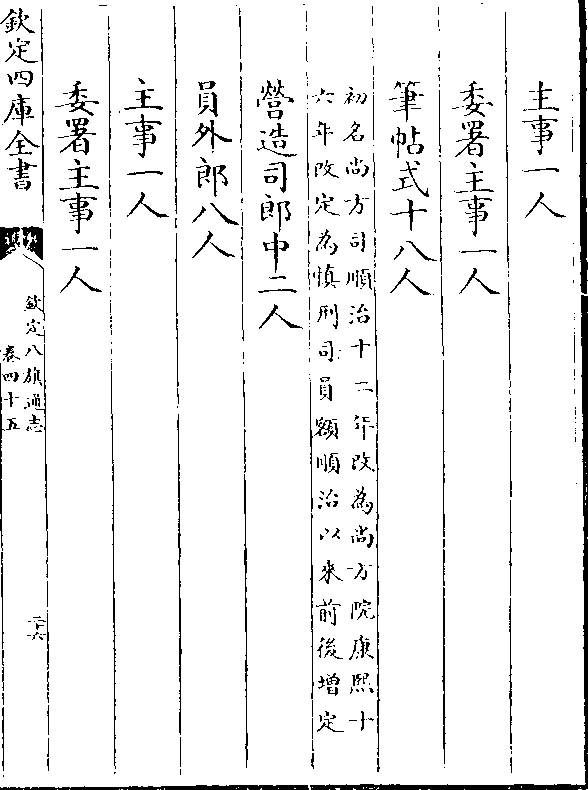 主事一人
委署主事一人
筆帖式十八人
初名尚方司順治十二年改為尚方院康熙十
六年改定為慎刑司員額順治以來前後增定
營造司郎中二人
員外郎八人
主事一人
委署主事一人
欽定四庫全書
欽定八旗通志
卷四十五
二十六